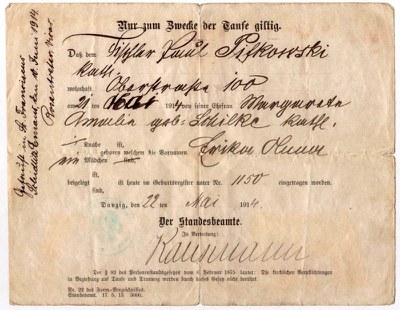 Nur zum Zwecke der Taufe giltig.
Daß dem Tischler Paul Pitkowski
kath.
wohnhaft Oberstraße 100
am 21 ten Mai 1914 von seiner Ehefrau Margarete
Amalie geb. Schilke kath.
ein Knabe ist,
ein Mädchen ist, geboren welchem die Vornamen Erika
beigelegt ist heute im Geburtsregister unter Nr. 1150 eingetragen worden.
Danzig, den 22 ten Mai 1914.
Der Standesbeamte.
In Vertretung:
Der § 82 des Personenstandsgesetzes vom 6. Februar 1875 lautet: Die kirchlichen Verpflichtungen
in Beziehung auf Taufe und Trauung werden durch dieses Gesetz nicht berührt.
Nr. 22 des Form-Verzeichnisses.
Standesamt. 17. 5. 13. 5000.
Getauft in St. Franziskus
den Juni 1914
Vikar.